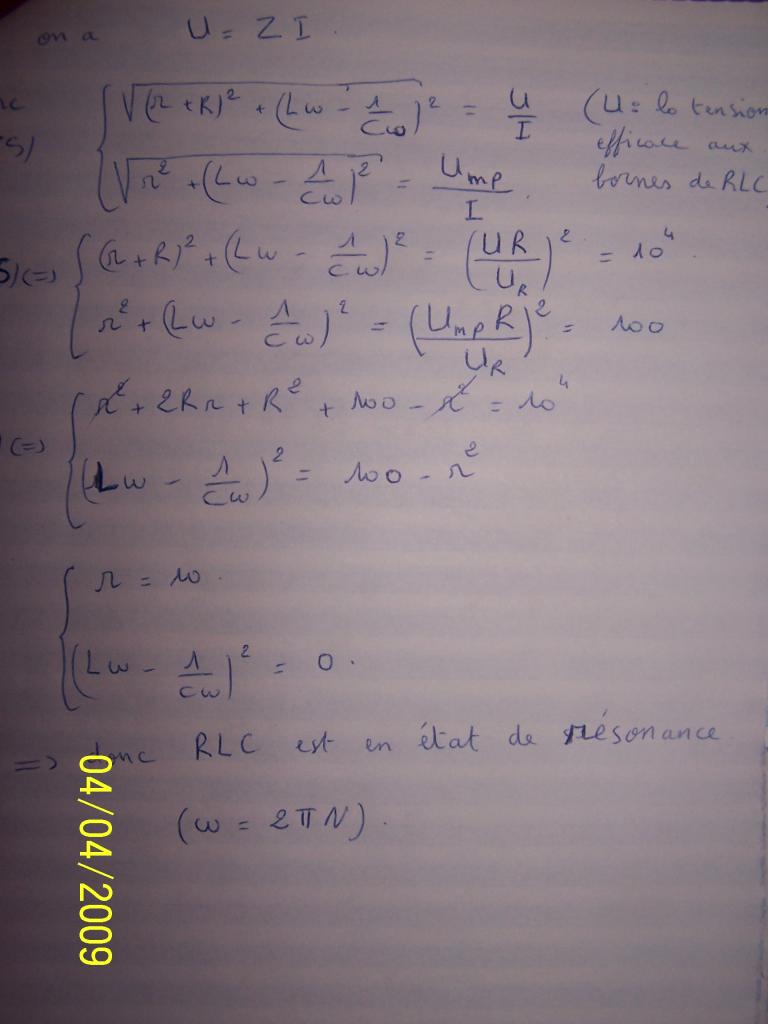 on a U = Z I.
√(r + R)² + (Lω - 1/Cω)² = U/I (U = la tension
efficace aux
S) √r² + (Lω - 1/Cω)² = Ump/I. bornes de RLC
S) (=) (r + R)² + (Lω - 1/Cω)² = (UR/UR)² = 10⁴.
r² + (Lω - 1/Cω)² = (Ump R/UR)² = 100
(=) r² + 2Rr + R² + 100 - r² = 10⁴
(Lω - 1/Cω)² = 100 - r²
r = 10.
(Lω - 1/Cω)² = 0.
=> donc RLC est en état de résonance
(ω = 2πN).
04/04/2009